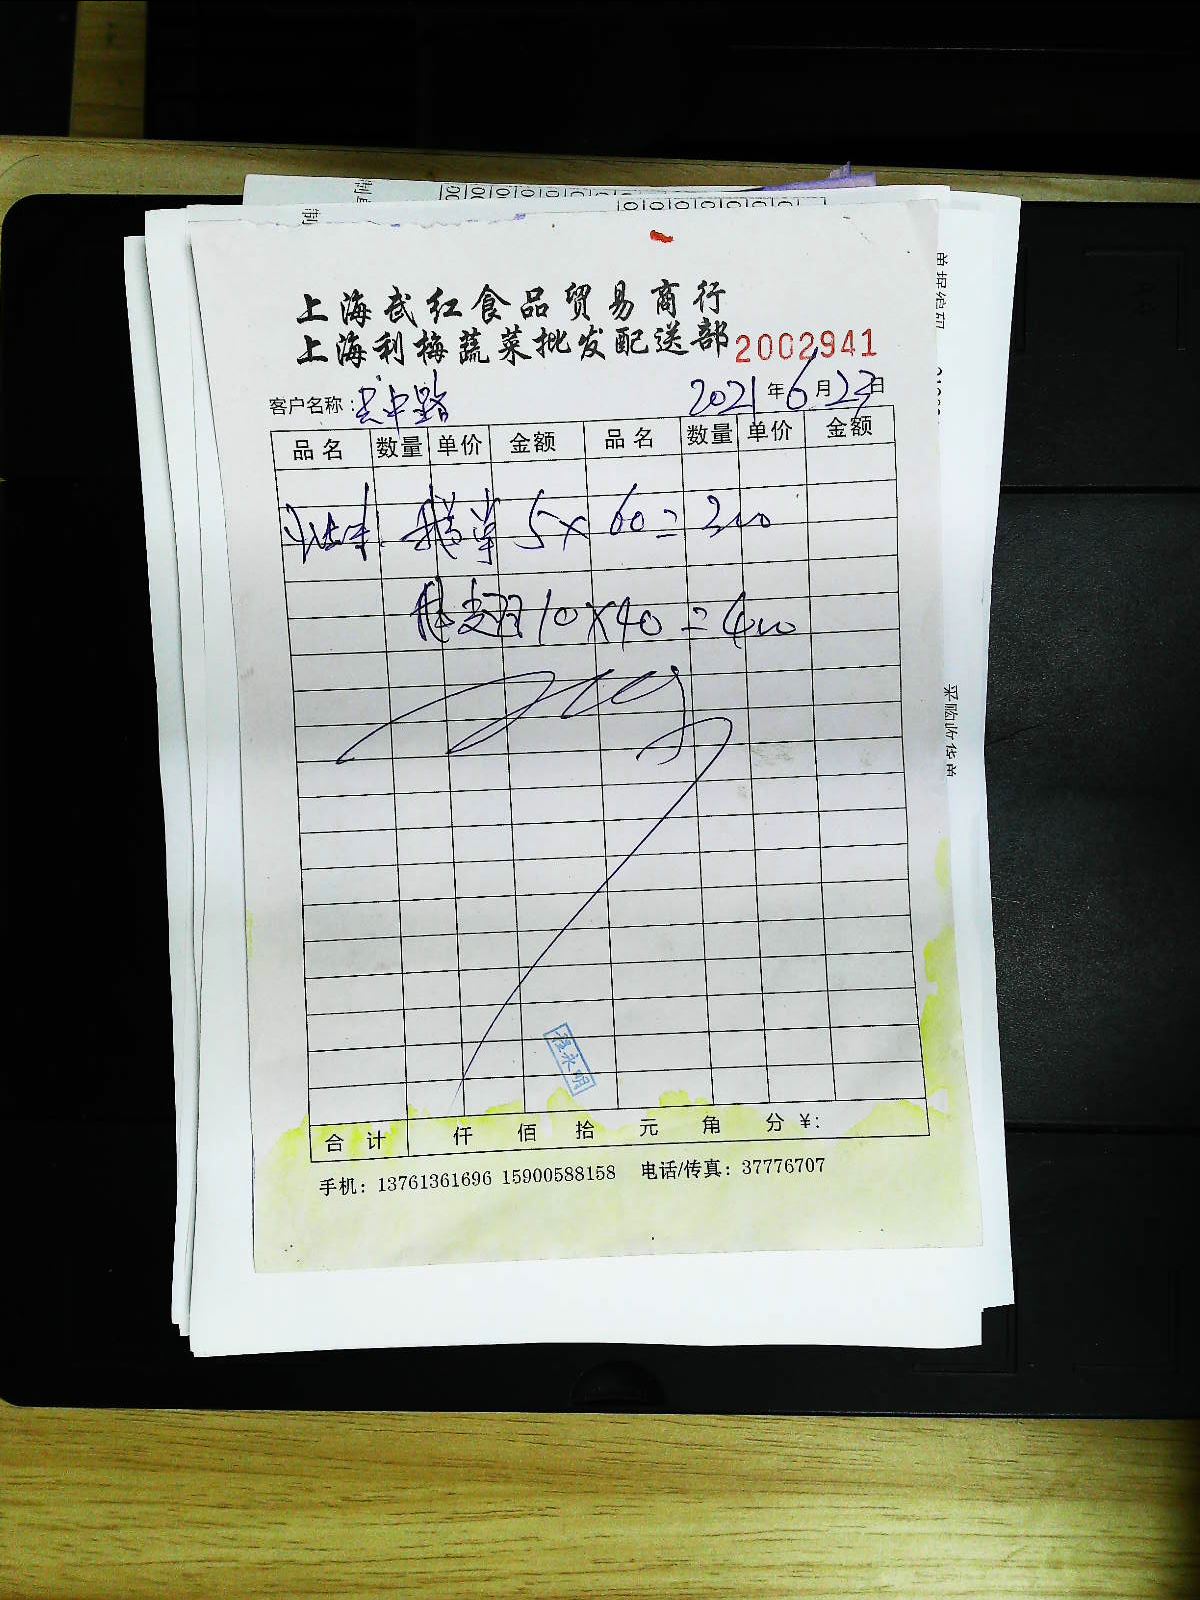 上海武红食品贸易商行
上海利梅蔬菜批发配送部 2002941
客户名称：吴中路 2021年6月27日
品名 数量 单价 金额 品名 数量 单价 金额
5×60=300
翅10×40=400
程永明
合计 仟 佰 拾 元 角 分 ¥:
手机：13761361696 15900588158 电话/传真：37776707
采购收货单